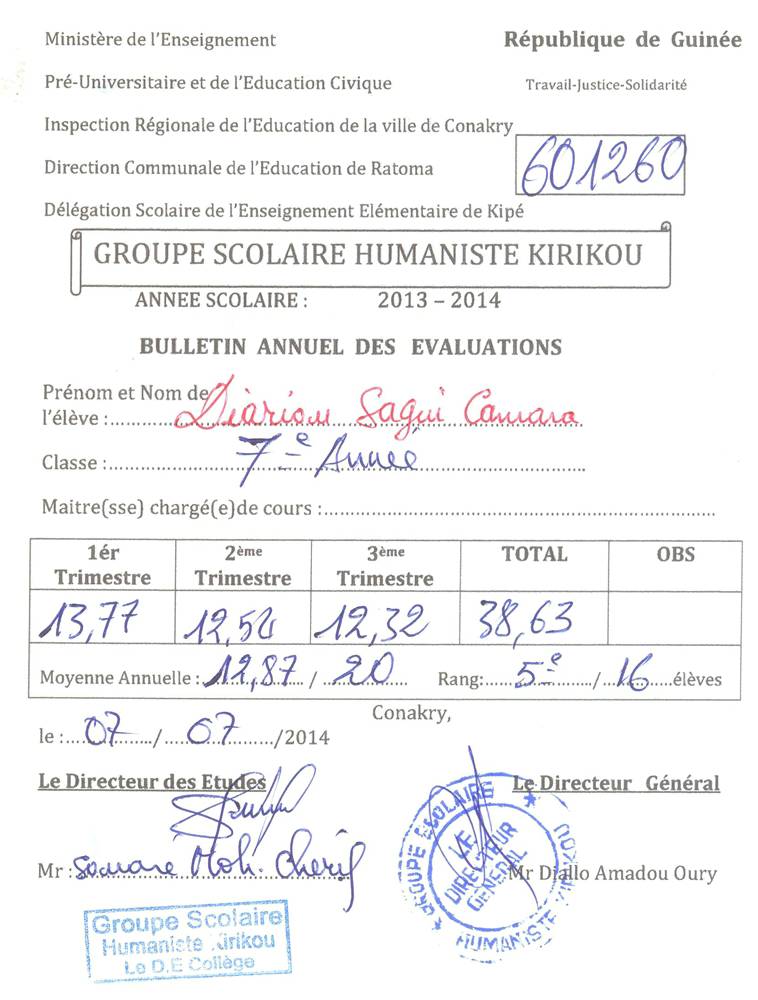 Ministère de l'Enseignement
République de Guinée
Pré-Universitaire et de l'Education Civique
Travail-Justice-Solidarité
Inspection Régionale de l'Education de la ville de Conakry
601260
Direction Communale de l'Education de Ratoma
Délégation Scolaire de l'Enseignement Elémentaire de Kipé
GROUPE SCOLAIRE HUMANISTE KIRIKOU
ANNEE SCOLAIRE : 2013 – 2014
BULLETIN ANNUEL DES EVALUATIONS
Prénom et Nom de
l'élève : Diariou Sagui Camara
Classe : 7e Année
Maitre(sse) chargé(e)de cours :
1ér Trimestre 2ème Trimestre 3ème Trimestre TOTAL OBS
13,77 12,54 12,32 38,63
Moyenne Annuelle : 12,87 / 20 Rang: 5e / 16 élèves
Conakry,
le : 07 / 07 /2014
Le Directeur des Etudes
Le Directeur Général
GROUPE SCOLAIRE HUMANISTE KIRIKOU
LE DIRECTEUR GENERAL
Mr : Soumare Moh. Cherif
Mr Diallo Amadou Oury
Groupe Scolaire
Humaniste Kirikou
Le D.E Collège